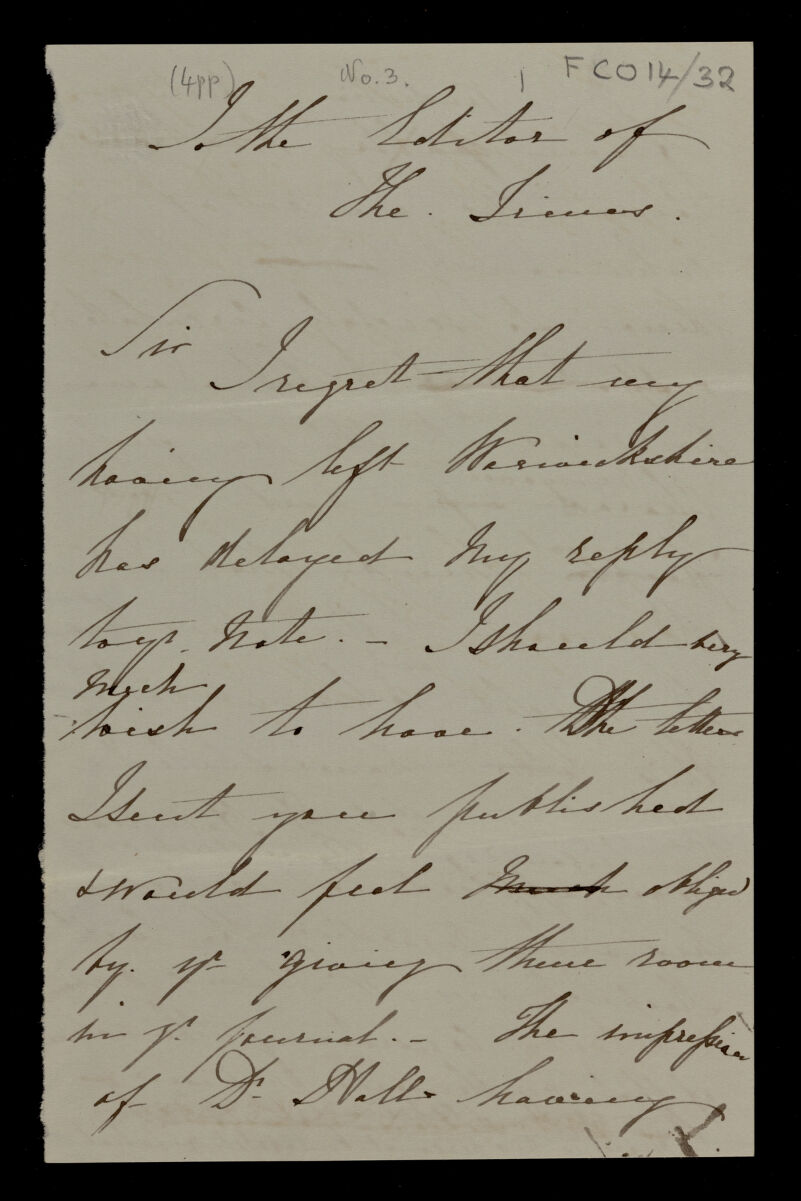 (4pp) No. 3. 1 FCO14/32
To the Editor of
The. Times.
Sir
I regret that my
having left Warwickshire
has delayed my reply
to yr. note. – I should very
much
wish to have. The letters
I sent you published
& would feel much obliged
by. yr giving them room
in yr. journal. – The impression
of Dr. Hall having